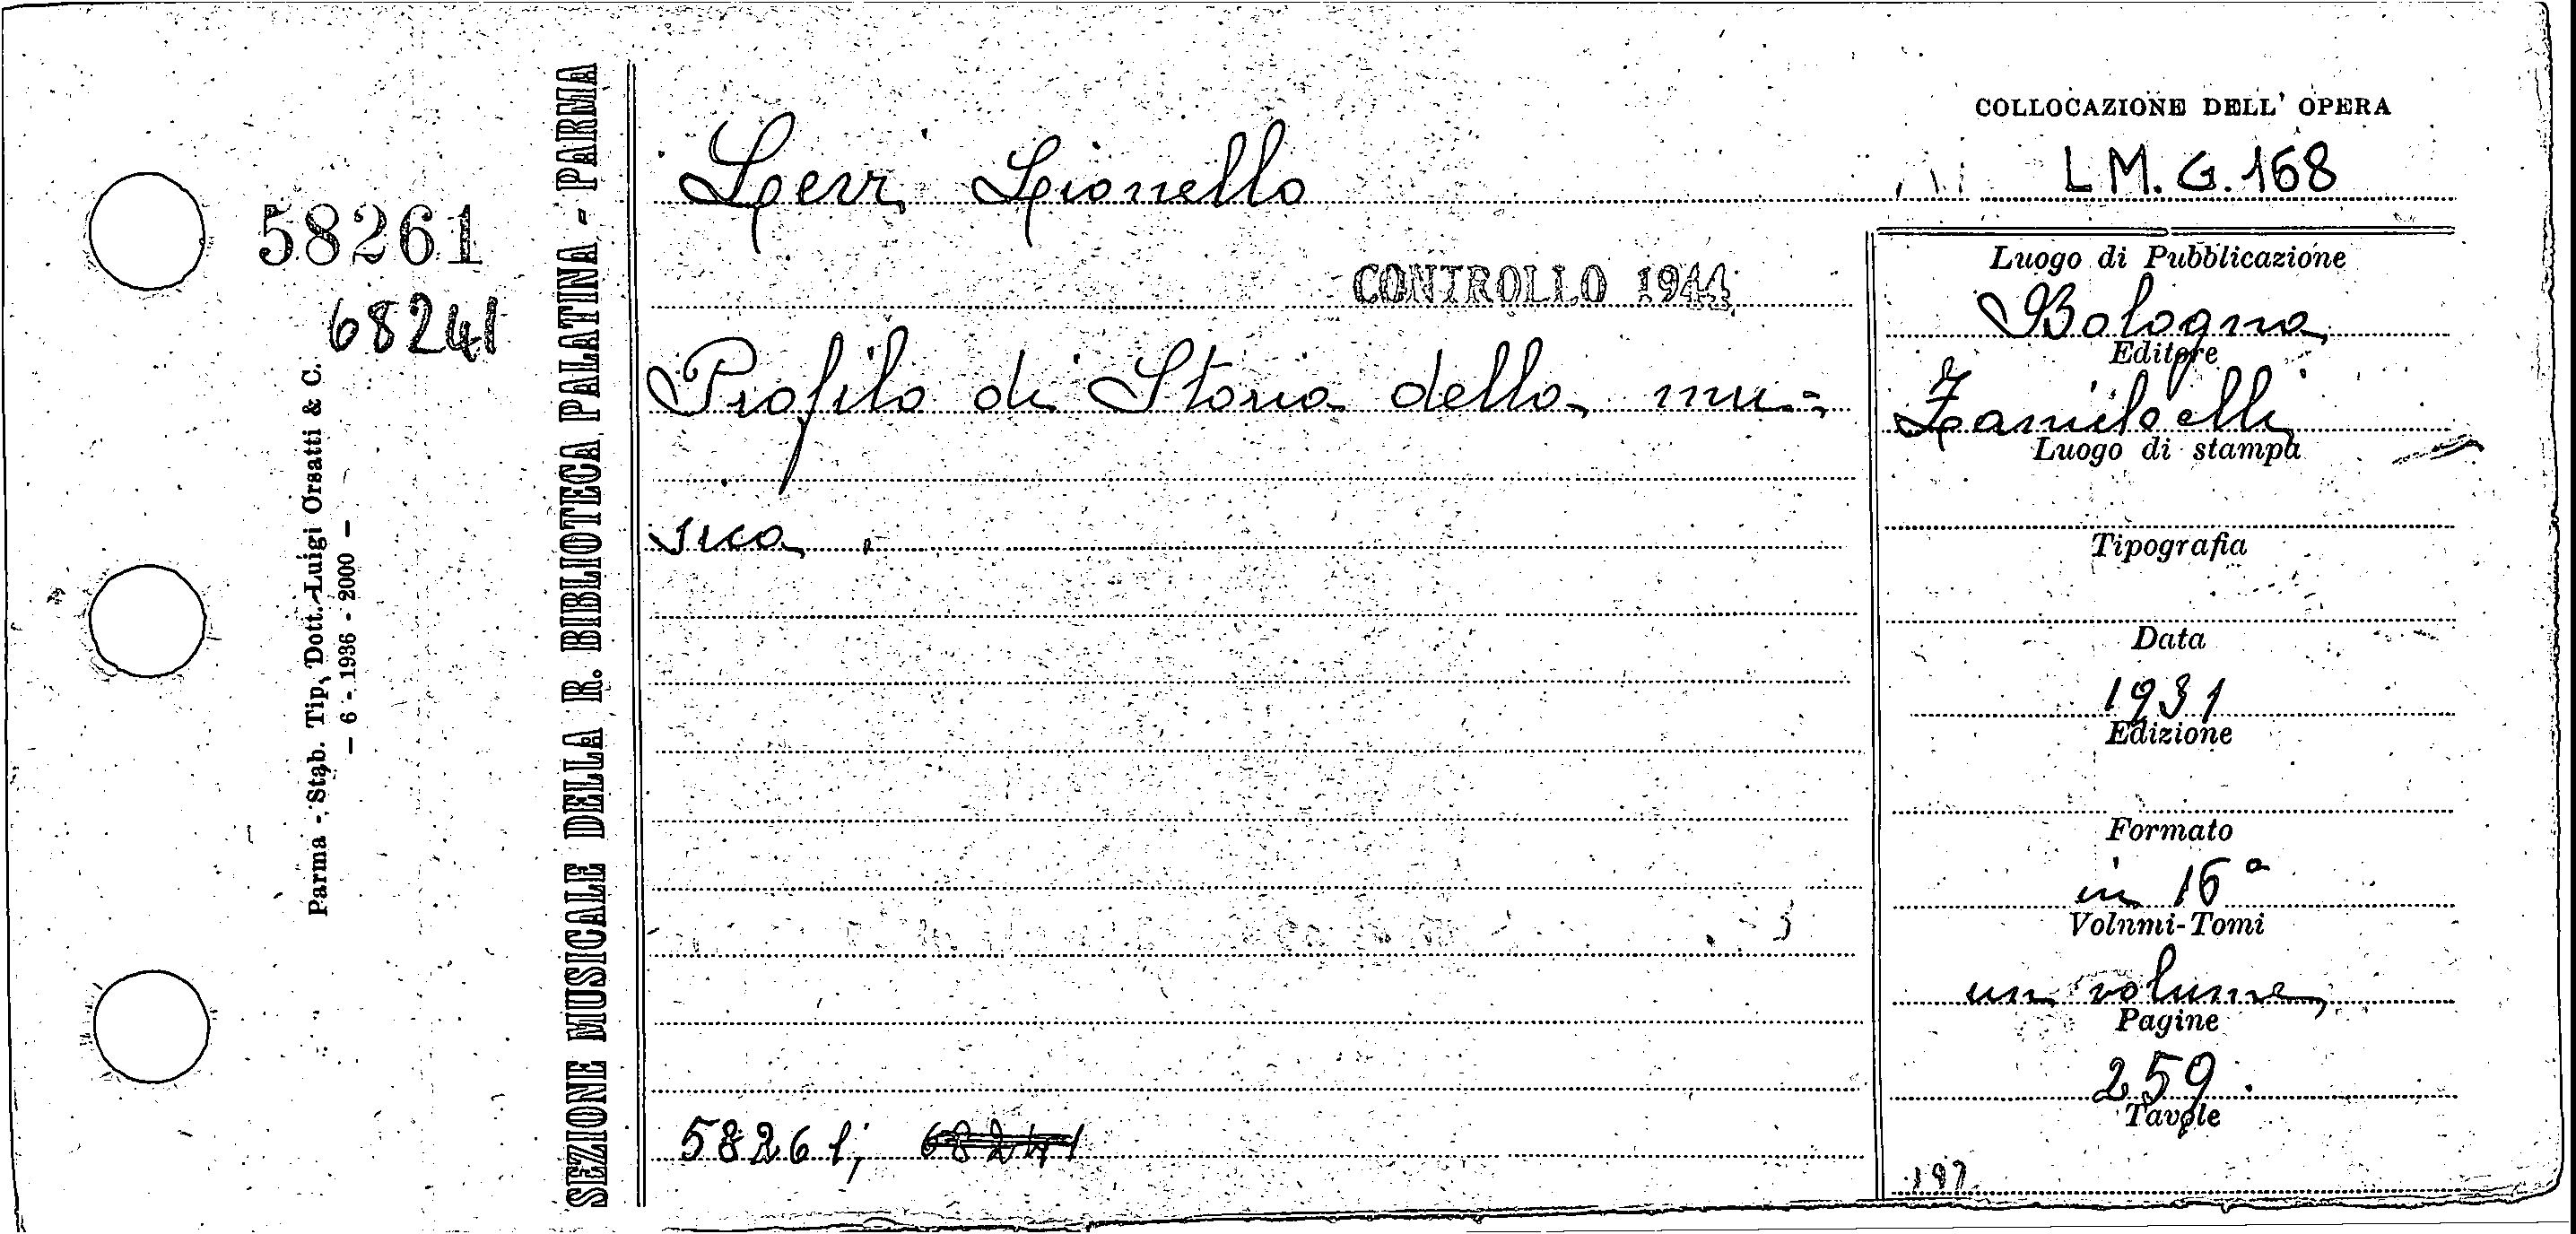 COLLOCAZIONE DELL' OPERA
Levi Lionello
L M. G. 168
58261
68241
CONTROLLO 1944
Profilo di Storia della mu-
sica.
58261; 68241
Luogo di Pubblicazione
Bologna
Editore
Zanichelli
Luogo di stampa
Tipografia
Data
1931
Edizione
Formato
in 16°
Volumi-Tomi
un volume
Pagine
259.
Tavole
197
SEZIONE MUSICALE DELLA R. BIBLIOTECA PALATINA - PARMA
Parma - Stab. Tip. Dott. Luigi Orsatti & C.
– 6 - 1936 - 2000 –